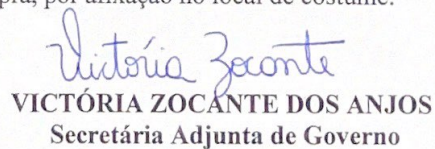 pra, por afixação no local de costume.
Victória Zocante
VICTÓRIA ZOCANTE DOS ANJOS
Secretária Adjunta de Governo